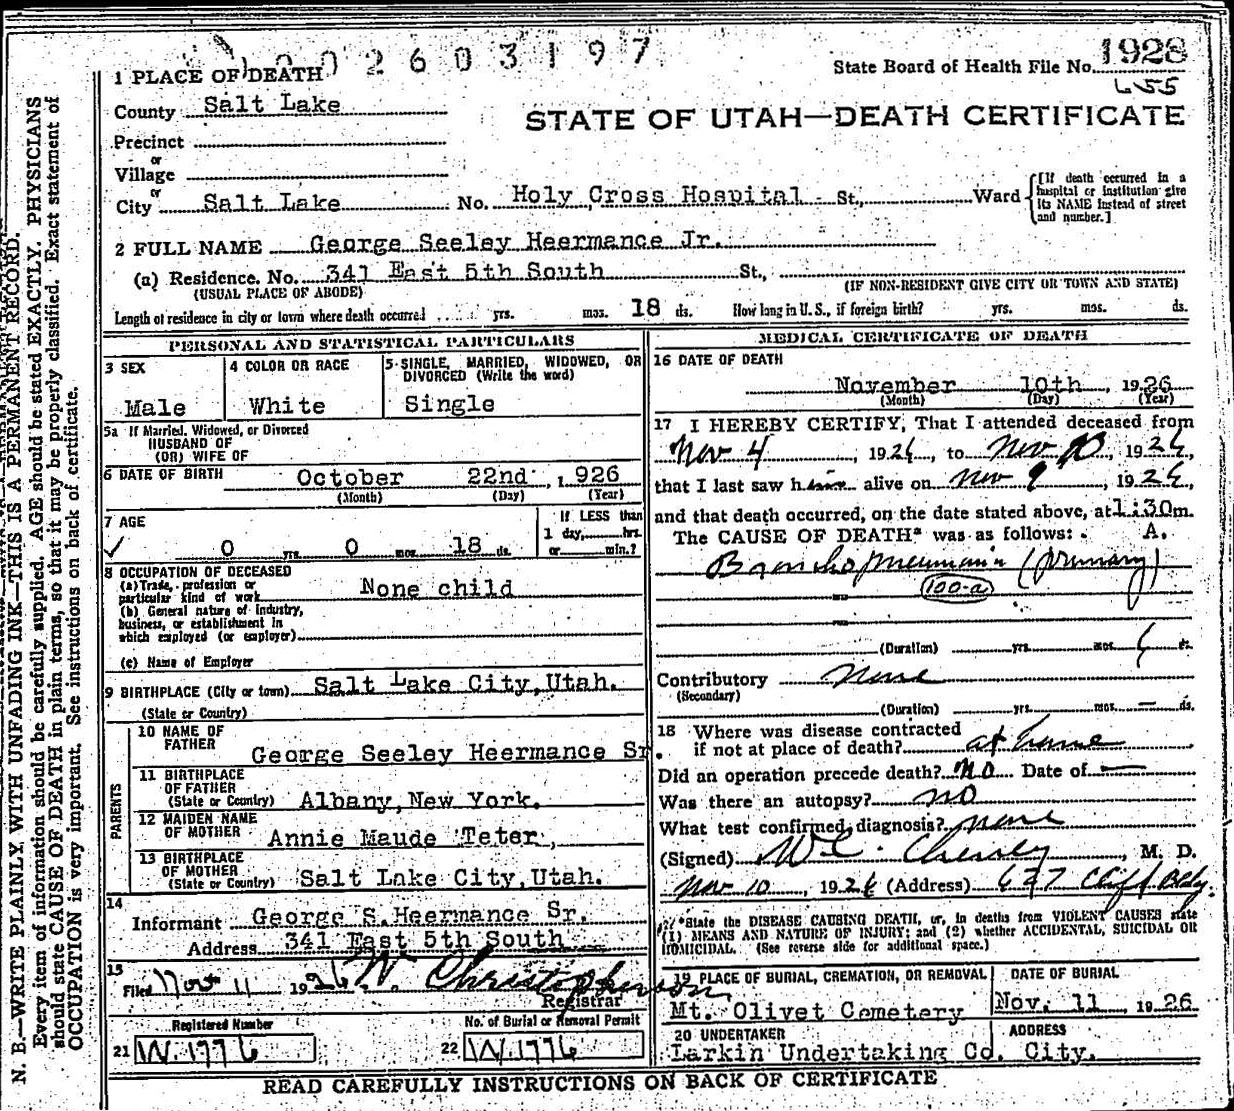 2603197
1928
State Board of Health File No.
655
1 PLACE OF DEATH
County Salt Lake
STATE OF UTAH—DEATH CERTIFICATE
Precinct
or
Village
or
City Salt Lake No. Holy Cross Hospital St., Ward
[If death occurred in a hospital or institution give its NAME instead of street and number.]
2 FULL NAME George Seeley Heermance Jr.
(a) Residence. No. 341 East 5th South St.,
(USUAL PLACE OF ABODE) (IF NON-RESIDENT GIVE CITY OR TOWN AND STATE)
Length of residence in city or town where death occurred yrs. mos. 18 ds. How long in U. S., if foreign birth? yrs. mos. ds.
PERSONAL AND STATISTICAL PARTICULARS
3 SEX 4 COLOR OR RACE 5 SINGLE, MARRIED, WIDOWED, OR DIVORCED (Write the word)
Male White Single
5a If Married, Widowed, or Divorced
HUSBAND OF
(OR) WIFE OF
6 DATE OF BIRTH October 22nd, 1926
(Month) (Day) (Year)
7 AGE If LESS than
1 day, hrs.
0 yrs. 0 mos. 18 ds. or min.?
8 OCCUPATION OF DECEASED
(a) Trade, profession or
particular kind of work None child
(b) General nature of industry,
business, or establishment in
which employed (or employer)
(c) Name of Employer
9 BIRTHPLACE (City or town) Salt Lake City, Utah.
(State or Country)
PARENTS
10 NAME OF
FATHER George Seeley Heermance Sr.
11 BIRTHPLACE
OF FATHER
(State or Country) Albany, New York.
12 MAIDEN NAME
OF MOTHER Annie Maude Teter,
13 BIRTHPLACE
OF MOTHER
(State or Country) Salt Lake City, Utah.
14
Informant George S. Heermance Sr.
Address 341 East 5th South
15
Filed Nov 11 1926 W. Christopherson
Registrar
Registered Number No. of Burial or Removal Permit
21 W.1776 22 W.1776
MEDICAL CERTIFICATE OF DEATH
16 DATE OF DEATH
November 10th, 1926
(Month) (Day) (Year)
17 I HEREBY CERTIFY, That I attended deceased from
Nov 4, 1926, to Nov 10, 1926,
that I last saw him alive on Nov 9, 1926,
and that death occurred, on the date stated above, at 1:30m.
The CAUSE OF DEATH* was as follows: A.
Broncho pneumonia (primary)
100-a
(Duration) yrs. mos. 6 ds.
Contributory None
(Secondary)
(Duration) yrs. mos. — ds.
18 Where was disease contracted
if not at place of death? at home
Did an operation precede death? No Date of —
Was there an autopsy? no
What test confirmed diagnosis? none
(Signed) M. D.
Nov 10, 1926 (Address) 627 Cliff Bldg.
*State the DISEASE CAUSING DEATH, or, in deaths from VIOLENT CAUSES state
(1) MEANS AND NATURE OF INJURY; and (2) whether ACCIDENTAL, SUICIDAL OR
HOMICIDAL. (See reverse side for additional space.)
19 PLACE OF BURIAL, CREMATION, OR REMOVAL DATE OF BURIAL
Mt. Olivet Cemetery Nov. 11 1926
20 UNDERTAKER ADDRESS
Larkin Undertaking Co. City.
READ CAREFULLY INSTRUCTIONS ON BACK OF CERTIFICATE
N. B.—WRITE PLAINLY, WITH UNFADING INK—THIS IS A PERMANENT RECORD.
Every item of information should be carefully supplied. AGE should be stated EXACTLY. PHYSICIANS
should state CAUSE OF DEATH in plain terms, so that it may be properly classified. Exact statement of
OCCUPATION is very important. See instructions on back of certificate.